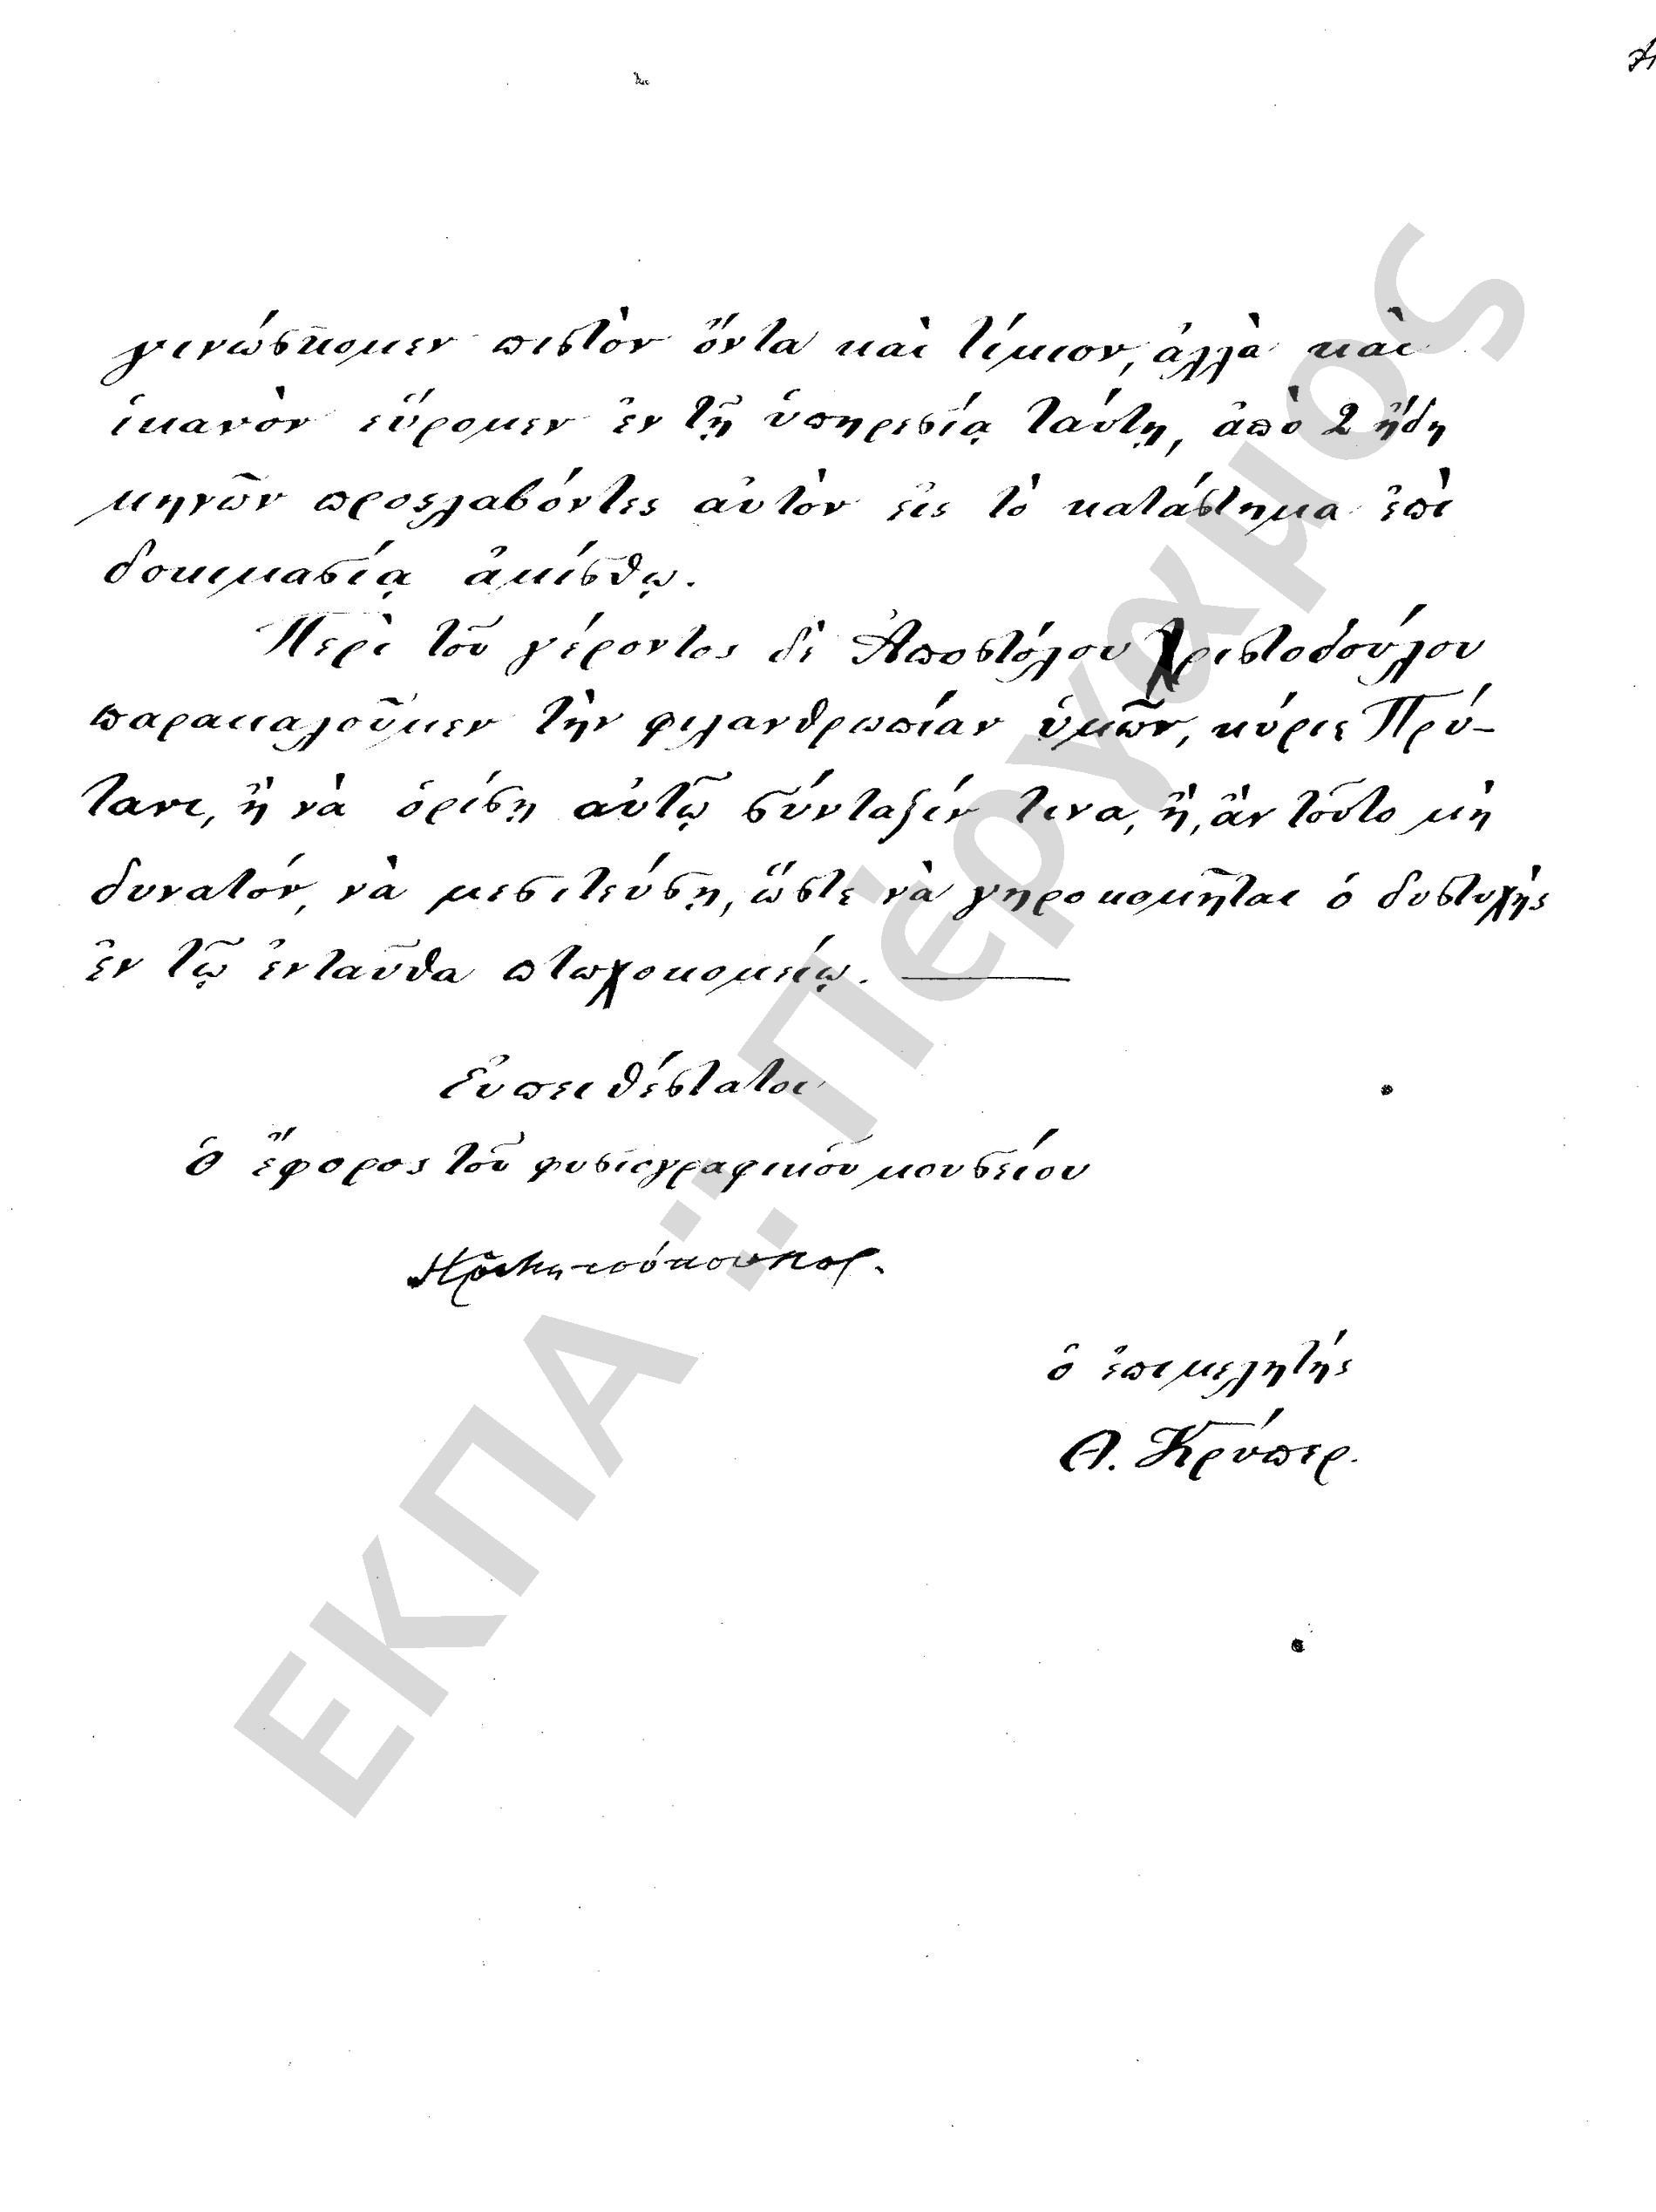 γινώσκομεν πιστὸν ὄντα καὶ τίμιον, ἀλλὰ καὶ
ἱκανὸν εὕρομεν ἐν τῇ ὑπηρεσίᾳ ταύτῃ, ἀπὸ 2 ἤδη
μηνῶν προσλαβόντες αὐτὸν εἰς τὸ κατάστημα ἐπὶ
δοκιμασίᾳ ἀμίσθῳ.
Περὶ τοῦ γέροντος δὲ Ἀποστόλου Χριστοδούλου
παρακαλοῦμεν τὴν φιλανθρωπίαν ὑμῶν, κύριε Πρύ-
τανι, ἢ νὰ ὁρίσῃ αὐτῷ σύνταξίν τινα, ἢ, ἂν τοῦτο μὴ
δυνατόν, νὰ μεσιτεύσῃ, ὥστε νὰ γηροκομῆται ὁ δυστυχὴς
ἐν τῷ ἐνταῦθα πτωχοκομείῳ.
Εὐπειθέστατοι
ὁ ἔφορος τοῦ φυσιογραφικοῦ μουσείου
ὁ ἐπιμελητής
Α. Κρύπερ.
ΕΚΠΑ :: Πέργαμος